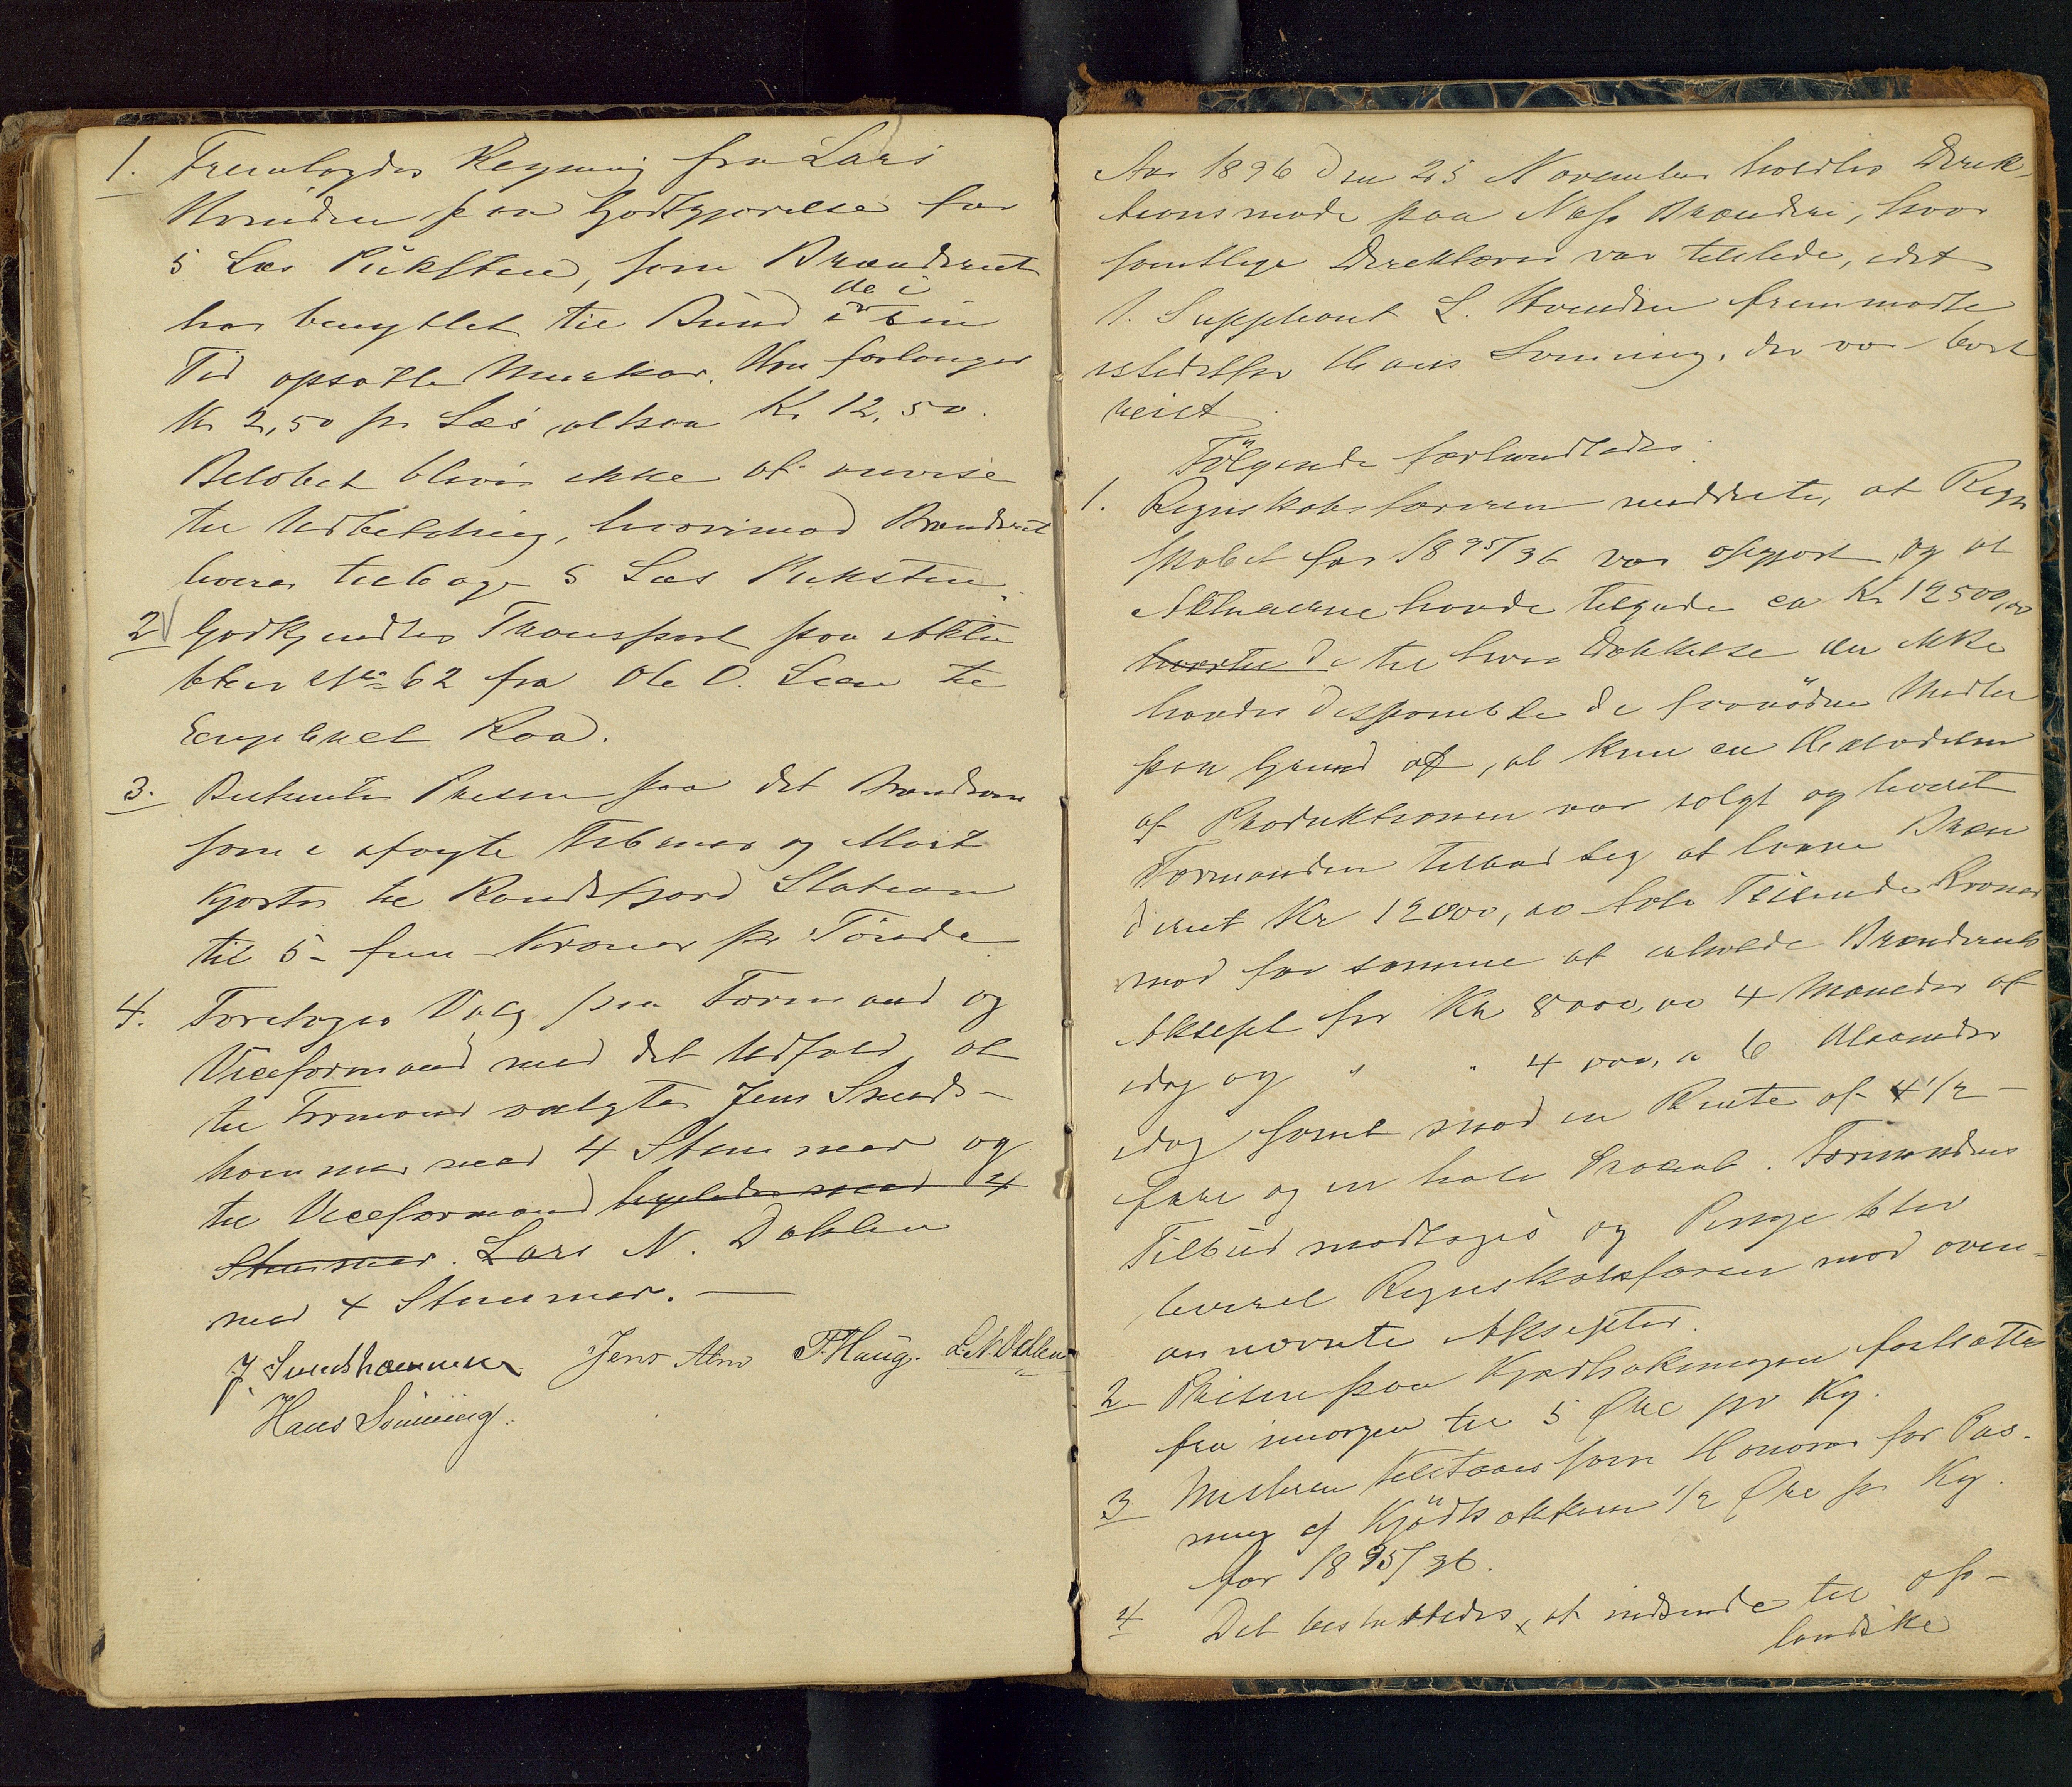 1. Fremlagdes Regning fra Lars
Hvinden paa Godtgjørelse for
5 Læs Pukksten, som Brænderiet
har benyttet til Bund i de i sin
Tid opsatte Murkar. Hvn forlanger
Kr 2,50 pr Læs altsaa Kr 12,50.
Beløbet blever ikke at anvise
til Udbetaling, hvorimod Brænderiet
leverer tilbage 5 Læs Puksten.
2 Godkjendtes Transport paa Aktie
brev No 62 fra Ole O. Lien til
Engebret Roa.
3. Bestemtes Prisen paa det Brændevin
som i afvigte Februar og Marts
kjørtes til Randsfjord Station
til 5 - fem - Kroner pr Tønde
4. Foretoges Valg paa Formand og
Viceformand med det Udfald, at
til Formand valgtes Jens Svends-
hammer med 4 Stemmer og
til Viceformand ligeledes med 4
Stemmer. Lars N. Dahlen
med 4 Stemmer. —
J Svendshammer Jens Alm P. Haug. L. N. Dahlen
Hans Sønning.
Aar 1896 den 25 November holdtes Direk-
tionsmøde paa Næs Brænderi, hvor
samtlige Direktører var tilstede, idet
1. Suppleant L. Hvinden fremmødte
istedetfor Hans Sønning, der var bort
reist
Følgende forhandledes.
1. Regnskabsføreren meddelte, at Regn
skabet for 1895/96 var opgjort og at
Aktieeierne havde tilgode ca Kr 12500,00
hvortil de til hvis Dækkelse der ikke
havdes disponible de fornødne Midler
paa Grund af, at kun en Halvdelen
af Produktionen var solgt og leveret
Formanden tilbød sig at laane Bræn
deriet Kr 12000,00 tolv Tusinde Kroner
mod for samme at erholde Brænderiets
Aksept for Kr 8000,00 4 Maaneder af
idag og " " 4 000,00 6 Maaneder
idag samt mod en Rente af 4 1/2 -
fire og en halv Procent. Formandens
Tilbud modtages og Penge blev
leveret Regnskabsføreren mod oven-
annævnte Aksepter.
2. Prisen paa Kjødhakningen fastsattes
fra imorgen til 5 Øre pr Kg.
3 Mesteren tilstaaes som Honorar for Pas-
ning af Kjødhakken 1/2 Øre pr Kg.
for 1895/96.
4 Det besluttedes, at indsende til op-
landske